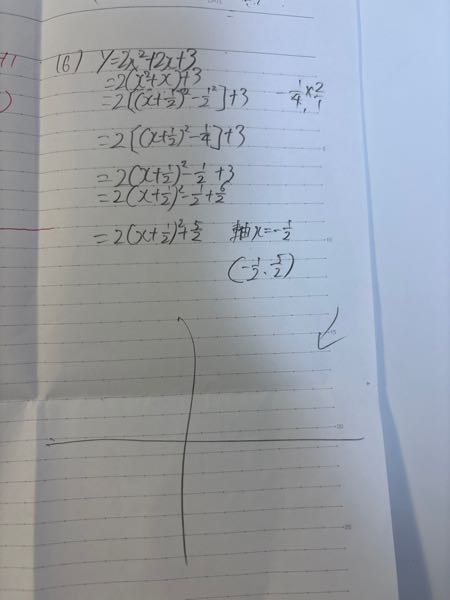 (6) y=2x²+2x+3
=2(x²+x)+3
=2[(x+1/2)²-1/2²]+3 -1/4×2/1
=2[(x+1/2)²-1/4]+3
=2(x+1/2)²-1/2+3
=2(x+1/2)²-1/2+6/2
=2(x+1/2)²+5/2 軸x=-1/2
(-1/2、5/2)